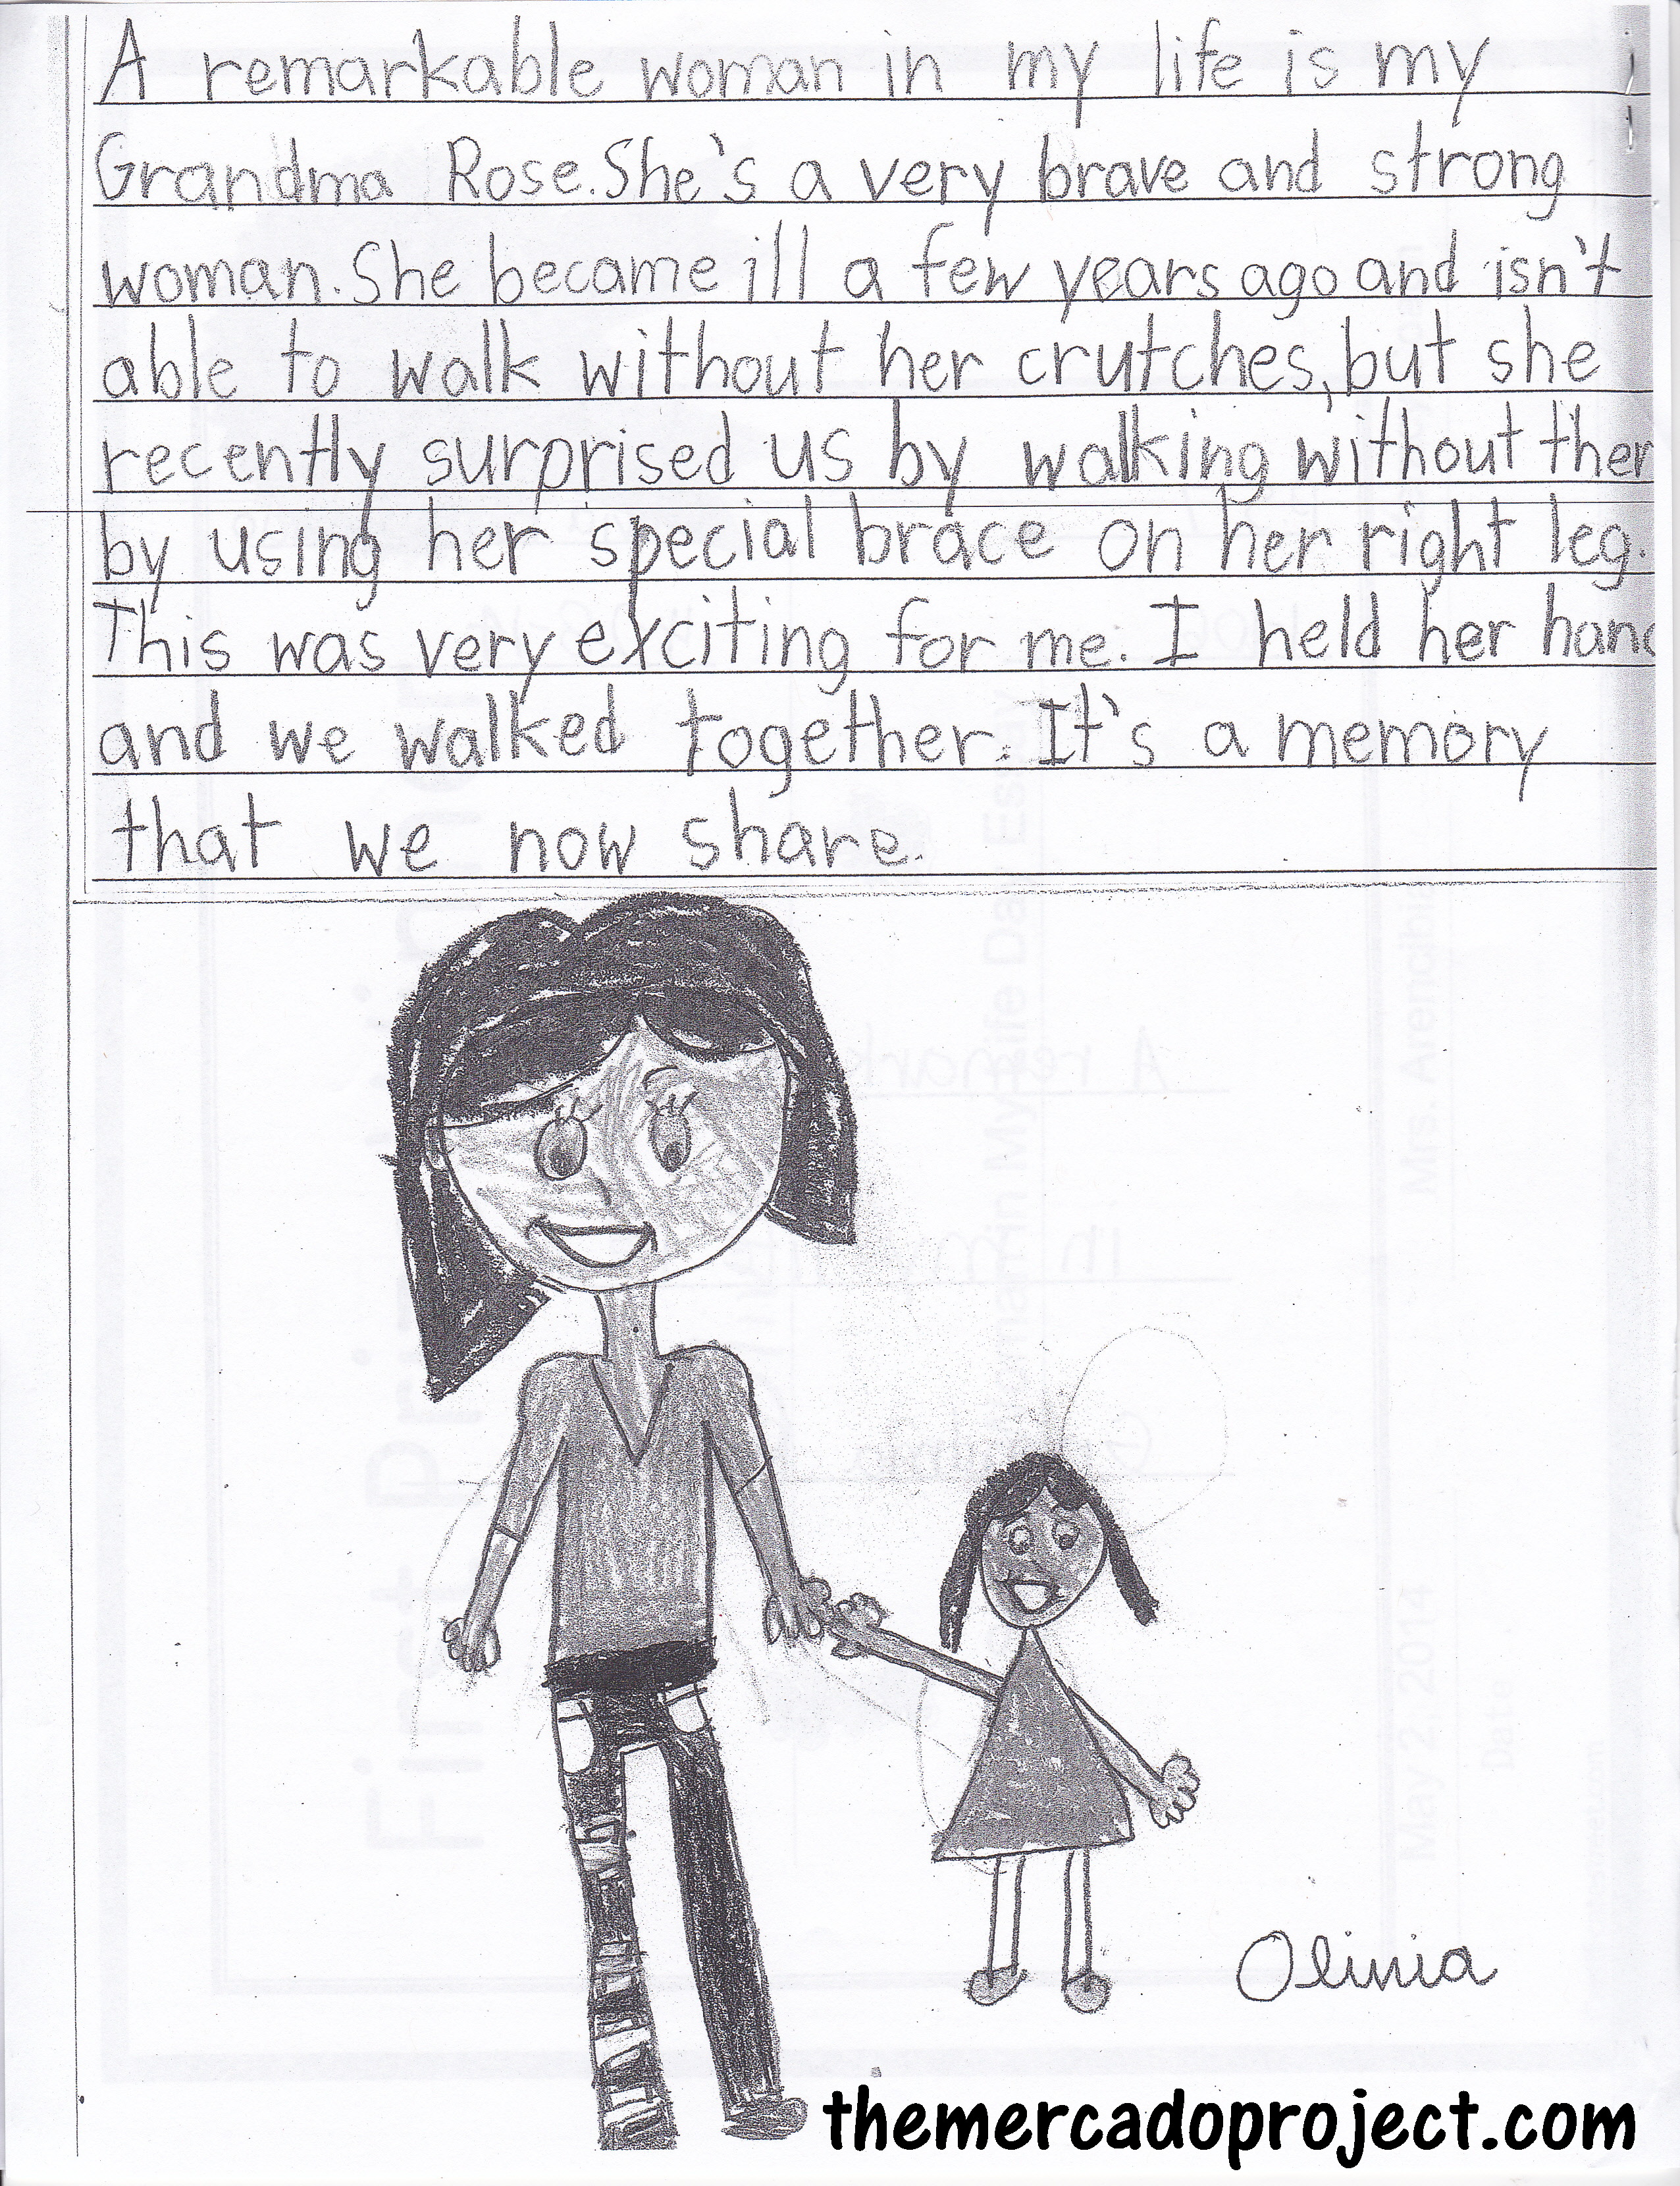 A remarkable woman in my life is my
Grandma Rose. She's a very brave and strong
woman. She became ill a few years ago and isn't
able to walk without her crutches, but she
recently surprised us by walking without ther
by using her special brace on her right leg.
This was very exciting for me. I held her hand
and we walked together. It's a memory
that we now share.
Olivia
themercadoproject.com